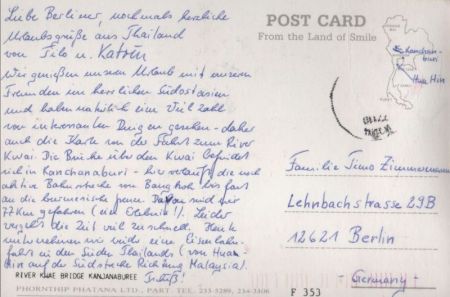 Liebe Berliner, nochmals herzliche
Urlaubsgrüße aus Thailand
von Tilo u. Katrin
Wir genießen unseren Urlaub mit unseren
Freunden im herrlichen Südostasien
und haben natürlich eine Vielzahl
von interessanten Dingen gesehen - daher
auch die Karte von der Fahrt zum River
Kwai. Die Brücke über den Kwai befindet
sich in Kanchanaburi - hier verläuft die noch
aktive Bahnstrecke von Bangkok bis fast
an die burmesische Grenze. Davon sind wir
77km gefahren (ein Erlebnis!). Leider
vergeht die Zeit viel zu schnell. Heute
unternehmen wir wieder eine Eisenbahn-
fahrt in den Süden Thailands (von Hua
Hin auf die Südstrecke Richtung Malaysia).
RIVER KWAE BRIDGE KANJANABUREE
PHORNTHIP PHATANA LTD., PART. TEL. 233-5289, 234-3406
POST CARD
From the Land of Smile
Kanchana-
buri
Hua Hin
Familie Timo Zimmermann
Lehnbachstrasse 29B
12621 Berlin
- Germany -
F 353